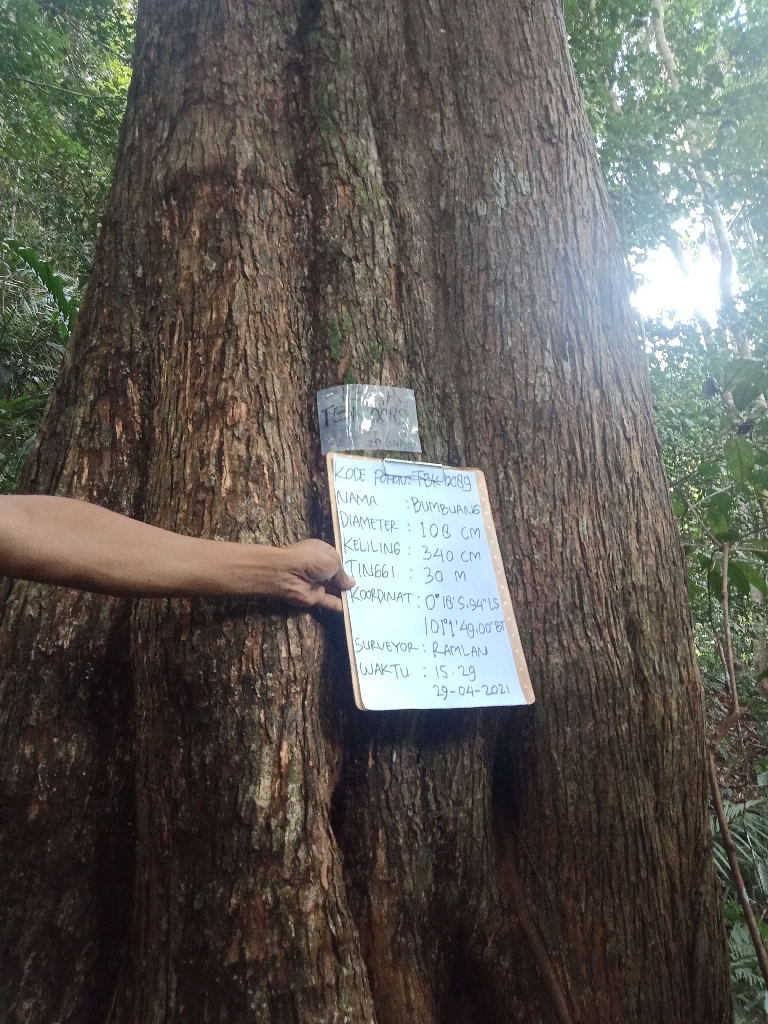 TBK 0089
KODE POHON: TBK 0089
NAMA : BUMBUANG
DIAMETER : 108 CM
KELILING : 340 CM
TINGGI : 30 M
KOORDINAT : 0°18'5.94"LS
101°1'49.00"BT
SURVEYOR : RAMLAN
WAKTU : 15.29
29-04-2021